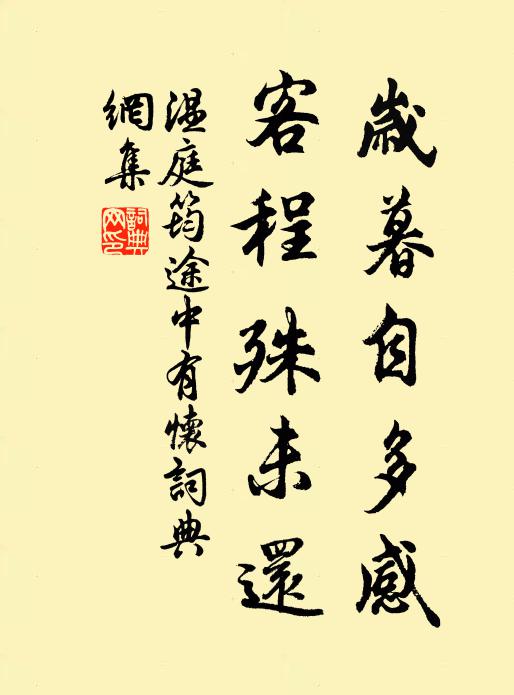 歲暮自多感
客程殊未還
温庭筠途中有懷詞典
網集
詞典
网印